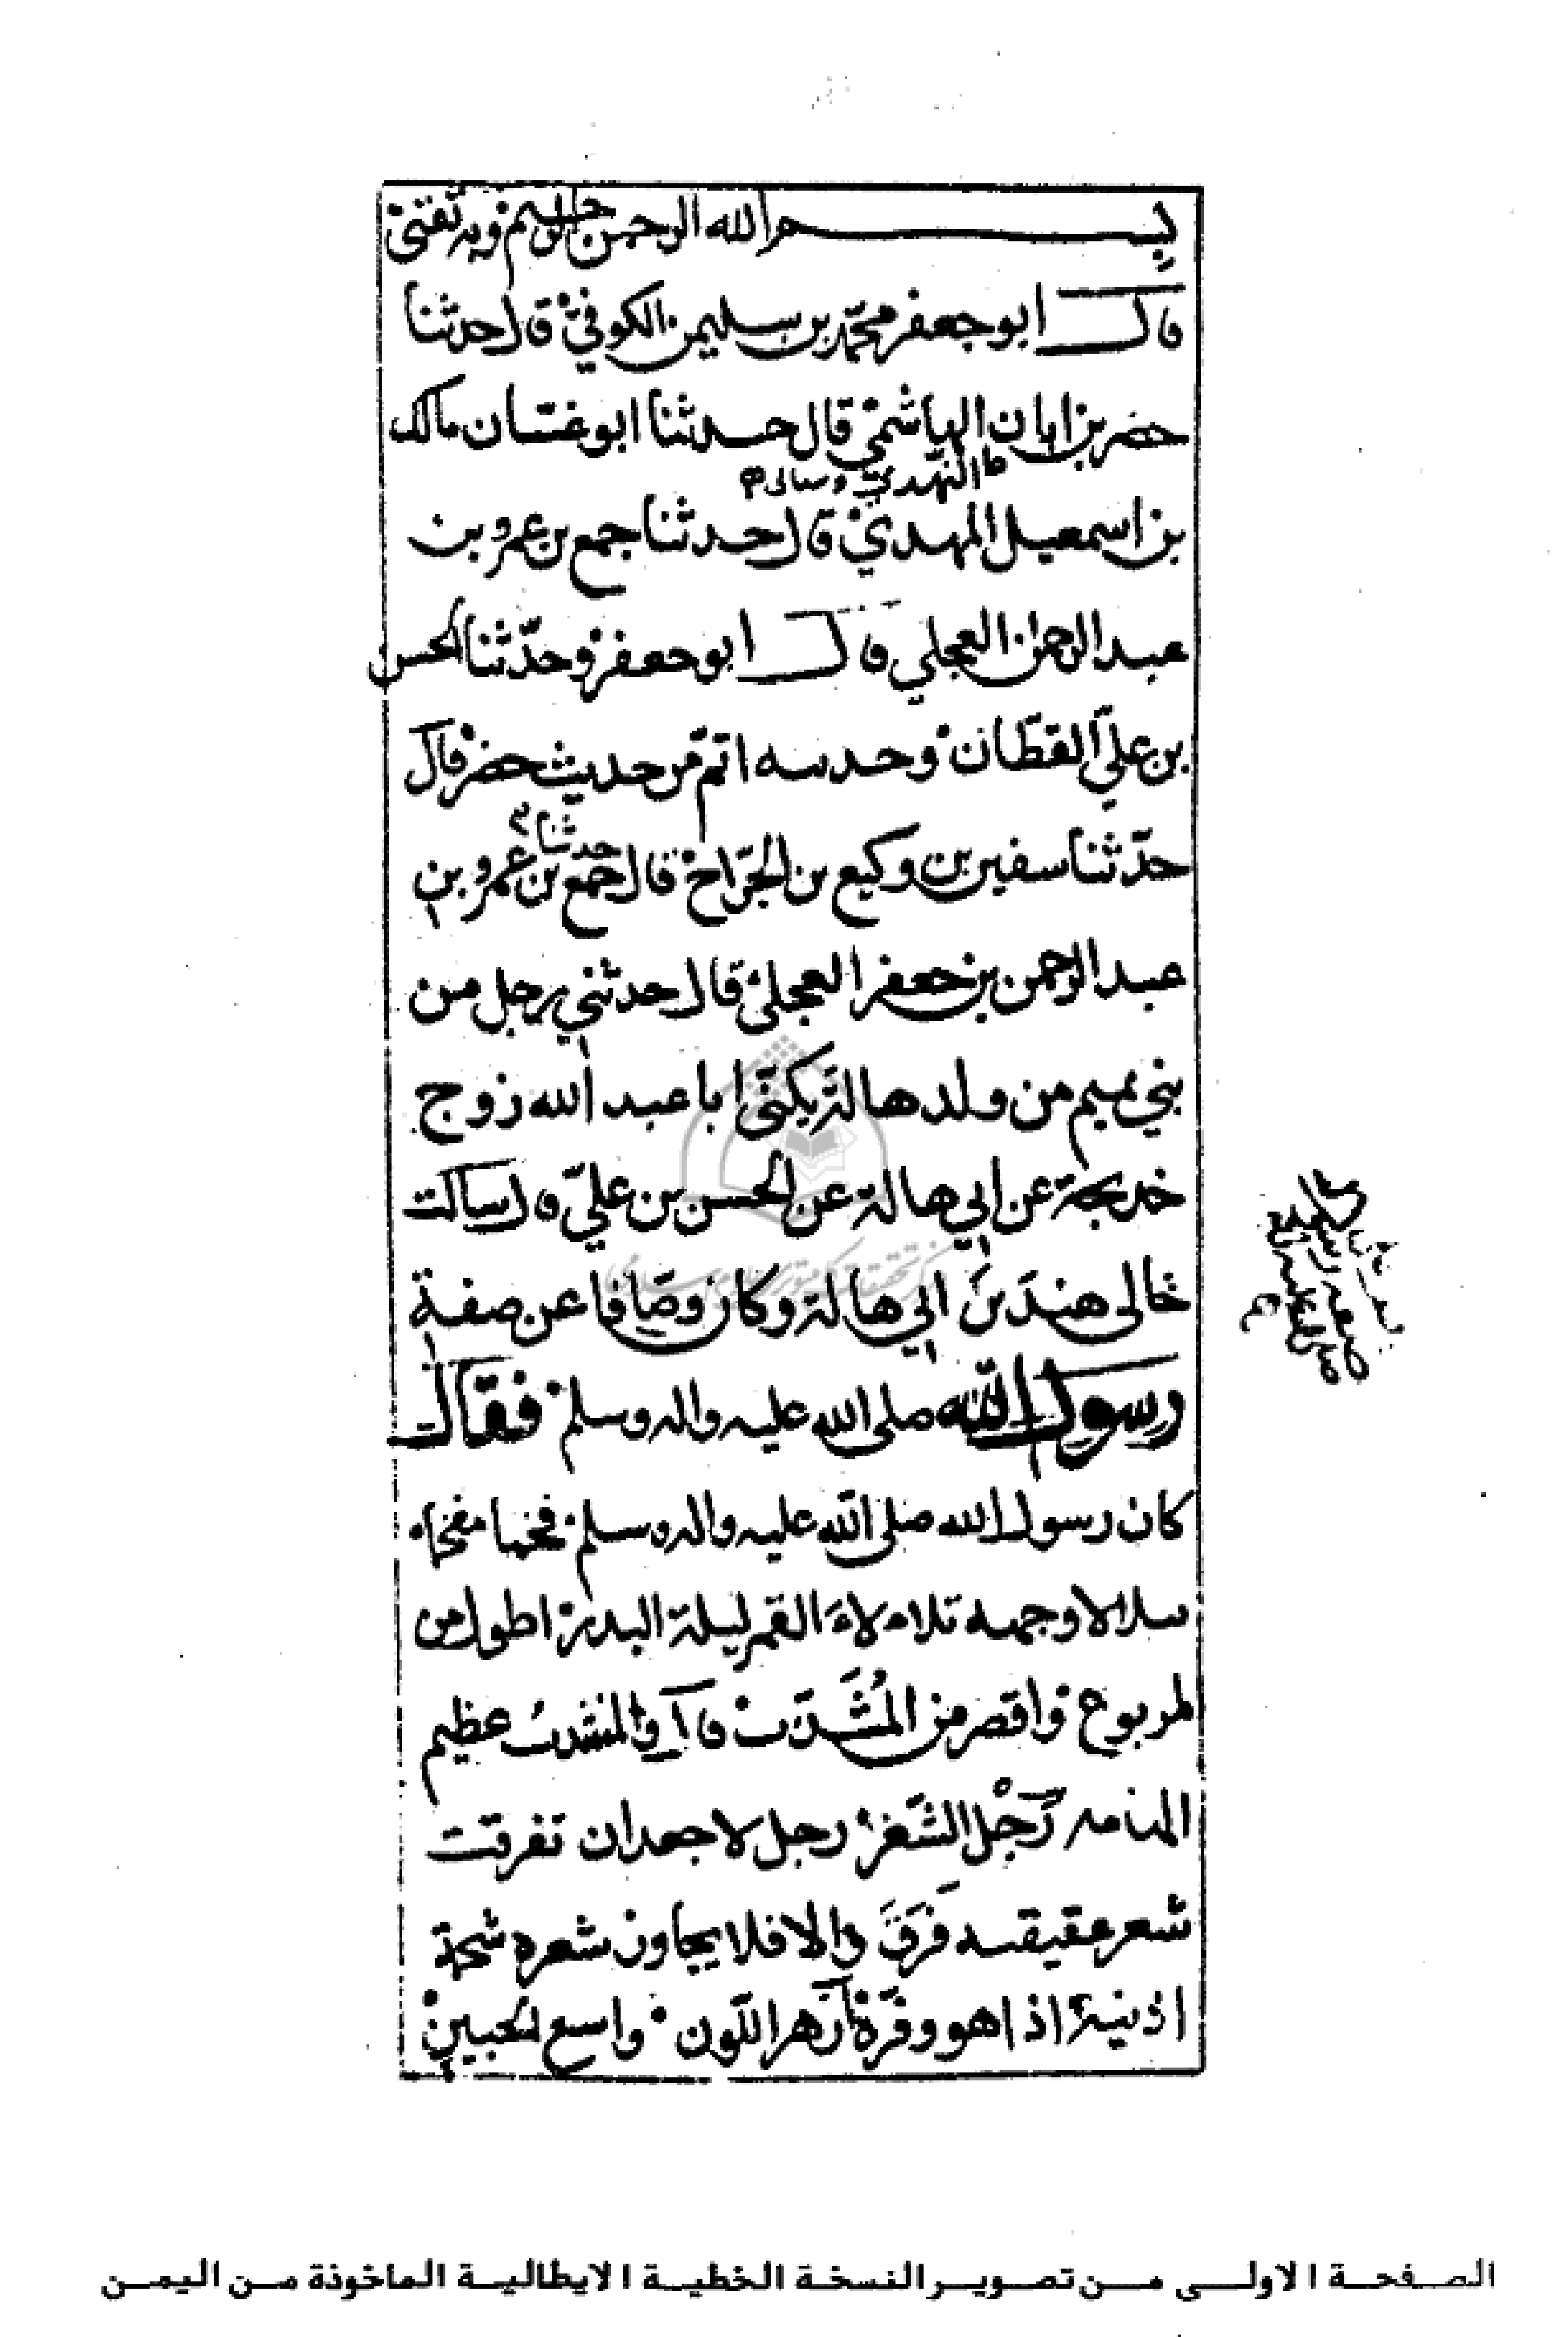 بسم الله الرحمن الرحيم وبه ثقتي
قال ابو جعفر محمد بن سليمن الكوفي قال حدثنا
خضر بن ابان الهاشمي قال حدثنا ابو غسان مالك
النهدي
بن اسمعيل المهدي قال حدثنا جميع بن عمرو بن
عبد الرحمن العجلي قال ابو جعفر وحدثنا الحسن
بن علي القطان وحديثه اتم من حديث خضر قال
حدثنا
حدثنا سفين بن وكيع بن الجراح قال جميع بن عمرو بن
عبد الرحمن بن جعفر العجلي قال حدثني رجل من
بني تميم من ولد هالة يكنى ابا عبد الله زوج
خديجة عن ابي هالة عن الحسن بن علي قال سالت
خالي هند بن ابي هالة وكان وصافا عن صفة
رسول الله صلى الله عليه واله وسلم فقال
كان رسول الله صلى الله عليه واله وسلم فخما مفخما
يتلالا وجهه تلاءلاء القمر ليلة البدر اطول من
المربوع واقصر من المشذب قال والمشذب عظيم
الهامه رجل الشعر رجل لا جعد ان تفرقت
شعر عقيقته فرق والا فلا يجاوز شعره شحمة
اذنيه اذا هو وفرة ازهر اللون واسع الجبين
الصفحة الاولى من تصوير النسخة الخطية الايطالية الماخوذة من اليمن